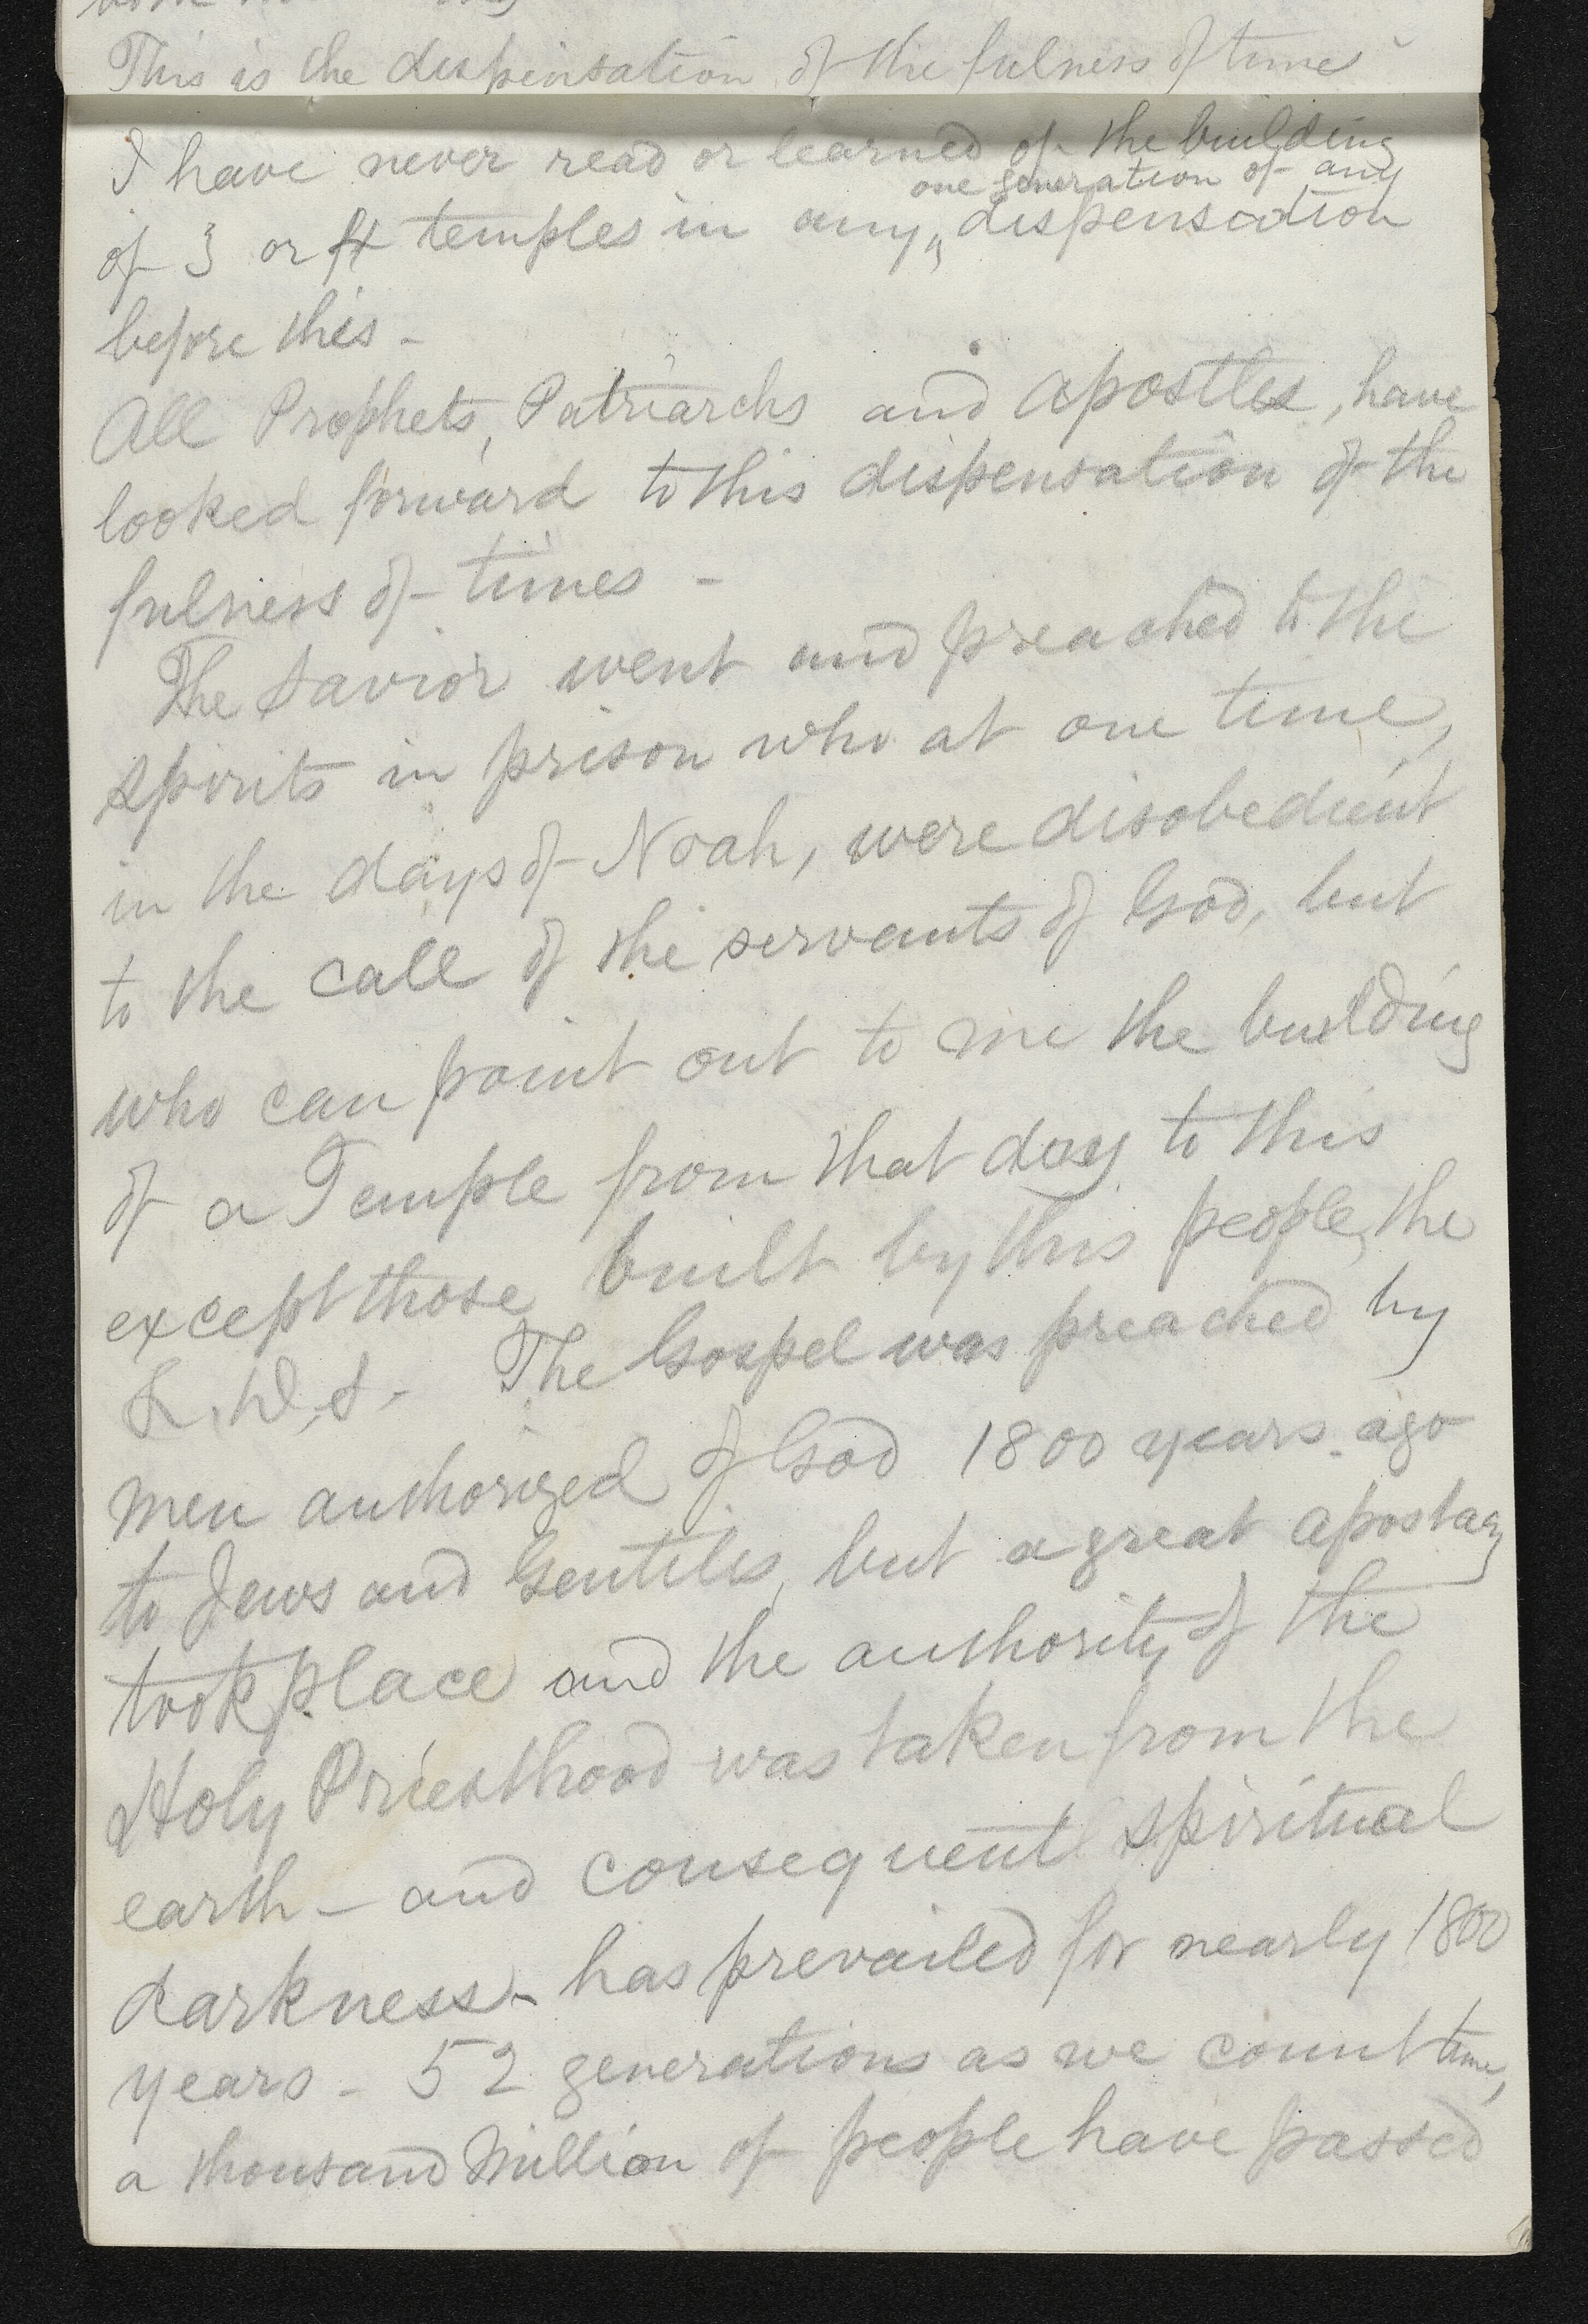 This is the dispensation of the fulness of times
I have never read or learned of the building
one generation of any
of 3 or 4 temples in any " dispensation
before this -
All Prophets, Patriarchs and Apostles, have
looked forward to this dispensation of the
fulness of times -
The Savior went and preached to the
spirits in prison who at one time,
in the days of Noah, were disobedient
to the call of the servants of God, but
who can point out to me the building
of a Temple from that day to this
except those built by this people, the
L. D. S. - The Gospel was preached by
men authorized of God 1800 years ago
to Jews and Gentiles, but a great apostasy
took place and the authority of the
Holy Priesthood was taken from the
earth - and consequent spiritual
darkness - has prevailed for nearly 1800
years - 52 generations as we count time,
a thousand Million of people have passed